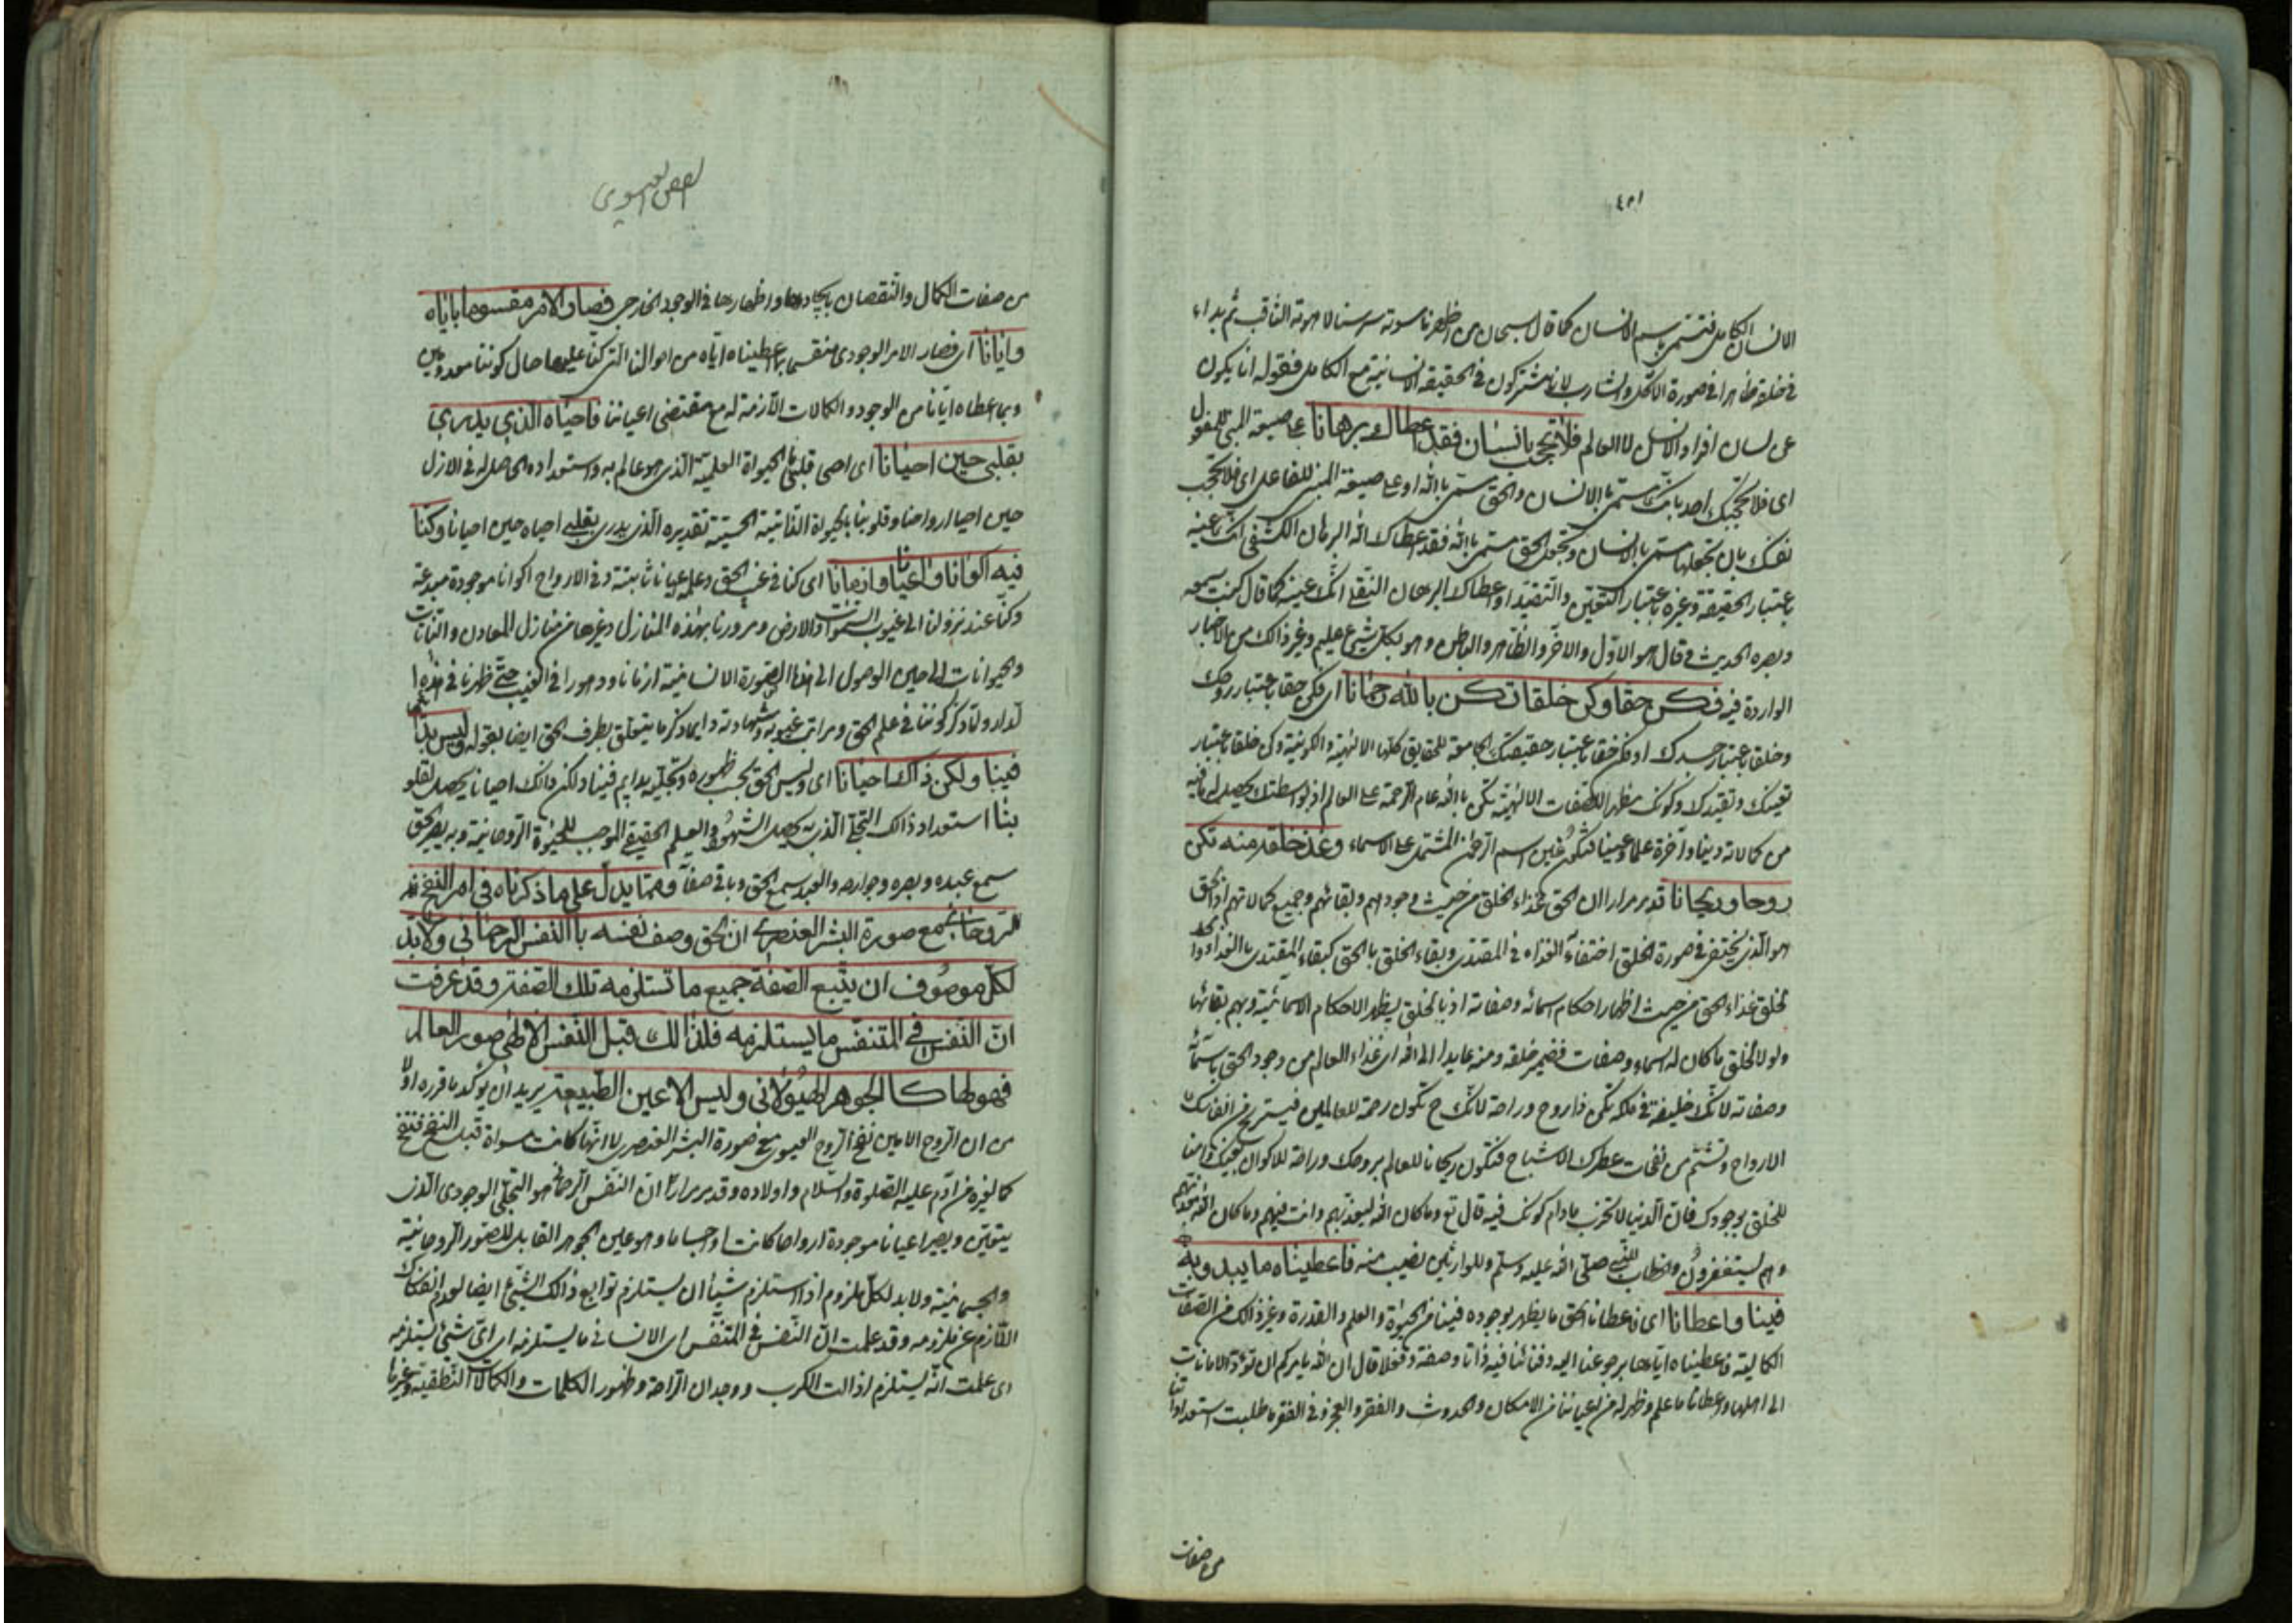 ٤٥١
الانسان الكامل فتسمى باسم الانسان كما قال سبحان من اظهر ناسوته سر سنا لاهوته الثاقب ثم بدا
في خلقه ظاهرا في صورة الآكل والشارب لانه مشتركون في الحقيقة الانسانية مع الكامل فقوله انا يكون
عن لسان افراد الانسان لا العالم فلا تحجب بانسان فقد اعطاك برهانا على صيغة المبنى للمفعول
اى فلا تحجبنك احد بانك مسمى بالانسان والحق مسمى باالله او على صيغة المبنى للفاعل اى فلا تحجب
نفسك بان تجعلها مسمى بالانسان وتجعل الحق مسمى باالله فقد اعطاك الله البرهان الكشفى انك عينه
باعتبار الحقيقة وغيره باعتبار التعين والتقيد او اعطاك البرهان النقلى انك عينه كما قال كنت سمعه
وبصره الحديث وقال هو الاول والآخر والظاهر والباطن وهو بكل شيئ عليم وغير ذالك من الاخبار
الواردة فيه فكن حقا وكن خلقا تكن بالله رحمانا اى فكن حقا باعتبار روحك
وخلقا باعتبار جسدك او كن حقا باعتبار حقيقتك الجامعة للحقايق كلها الالهية والكونية وكن خلقا باعتبار
تعينك وتقيدك وكونك مظهرا للصفات الالهية تكن باالله عام الرحمة على العالم اذ بواسطتك يحصل له ما فيه
من كمالاته دينا وآخرة علما وعينا فتكون عين اسم الرحمن المشتمل على الاسماء وغذ خلقه منه تكن
روحا وريحانا قد مر مرارا ان الحق غذاء الخلق من حيث وجودهم وبقائهم وجميع كمالاتهم اذ الحق
هو الذي يختفى في صورة الخلق اختفاء الغذاء في المغتذى وبقاء الخلق باالحق كبقاء المغتذى باالغذاء و
الخلق غذاء الحق من حيث اظهار احكام اسمائه وصفاته اذ باالخلق يظهر الاحكام الاسمائية وبهم بقائها
ولولا الخلق ما كان له اسماء وصفات فضمير خلقه ومنه عايدا الى الله اى غذاء العالم من وجود الحق باسمائه
وصفاته لانك خليفة في ملكه تكن ذا روح وراحة لانك ح تكون رحمة للعالمين فيستريح من انفاسك
الارواح وتشتم من نفحات عطرك الاشباح فتكون ريحانا للعالم بروحك وراحة للاكوان
للخلق بوجودك فان الدنيا لا تخرب مادام كونك فيه قال تع وما كان الله ليعذبهم وانت فيهم وما كان الله معذبهم
وهم يستغفرون والخطاب للنبي صلى الله عليه وسلم وللوارثين نصيب منه فاعطيناه ما يبدو به
فينا واعطانا اى فاعطانا الحق ما يظهر بوجوده فينا من الحيوة والعلم والقدرة وغير ذلك من الصفات
الكمالية فاعطيناه اياها برجوعنا اليه وفنائنا فيه ذاتا وصفة وفعلا قال ان الله يامركم ان تؤدوا الامانات
الى اهلها واعطانا ما علم وظهر له من اعياننا من الامكان والحدوث والفقر والعجز وفى الفقر ما طلبت استعداداتنا
من صفات
الفص العيسوى
من صفات الكمال والنقصان بايجادها واظهارها في الوجود الخارجى فصار الامر مقسوما باياه
وايانا اى فصار الامر الوجودى منقسما بما اعطيناه اياه من احوالنا التى كنا عليها حال كوننا معدومين
وبما اعطاه ايانا من الوجود والكمالات اللازمة له مع مقتضى اعياننا فاحياه الذي يدرى
بقلبي حين احيانا اى احى قلبى بالحيواة العلمية الذى هو عالم به وباستعداده الحاصل له فى الازل
حين احيا ارواحنا وقلوبنا بالحيوة الذاتية الحسية تقديره الذى يدرى بقلبى احياه حين احيانا وكنا
فيه اكوانا واعيانا وازمانا اى كنا في غيب الحق وعلمه اعيانا ثابتة وفى الارواح اكوانا موجودة مبدعة
وكنا عند نزولنا الى غيوب السموات والارض ومرورنا بهذه المنازل وغيرها من منازل المعادن والنباتات
والحيوانات الى حين الوصول الى هذا الصورة الانسانية ازمانا ودهورا فى الغيب حتى ظهرنا فى هذه ا
لدار ولما ذكر كوننا في علم الحق ومراتب غيوبه وشهادته دايما ذكر ما يتعلق بطرف الحق ايضا بقوله وليس بدائم
فينا ولكن ذاك احيانا اى وليس الحق بحسب ظهوره وتجليه بدايم فينا ولكن ذالك احيانا يحصل لقلو
بنا استعداد ذالك التجلى الذى به يحصل الشهود والعلم الحقيقى الموجب للحيوة الروحانية وبه يصير الحق
سمع عبده وبصره وجوارحه والعبد سمع الحق وباقى صفاته ومما يدل على ما ذكرناه فى امر النفخ
الروحانى مع صورة البشر العنصرى ان الحق وصف نفسه باالنفس الرحمانى ولابد
لكل موصوف ان يتبع الصفة جميع ما تستلزمه تلك الصفة وقد عرفت
ان النفس في المتنفس ما يستلزمه فلذالك قبل النفس الالهى صور العالم
فهو لها كاالجوهر الهيولانى وليس الا عين الطبيعة يريد ان يوكد ما قرره اولا
من ان الروح الامين نفخ الروح العيسوى مع صورة البشر العنصرى لا انها كانت مسواة قبل النفخ فنفخ
كما لغيره من آدم عليه الصلوة والسلام واولاده وقد مر مرارا ان النفس الرحمانى هو التجلى الوجودى الذى
يتعين ويصير اعيانا موجودة ارواحا كانت او اجساما وهو عين الجوهر القابل للصور الروحانية
والجسمانية ولابد لكل ملزوم اذا استلزم شيئا ان يستلزم توابع ذالك الشيئ ايضا لعدم انفكاك
اللازم عن ملزومه وقد علمت ان النفس في المتنفس اى الانسان ما يستلزمه اى اىّ شيئ يستلزمه
اى علمت انه يستلزم اذالت الكرب ووجدان الراحة وظهور الكلمات والكمالات النطقية وغيرها